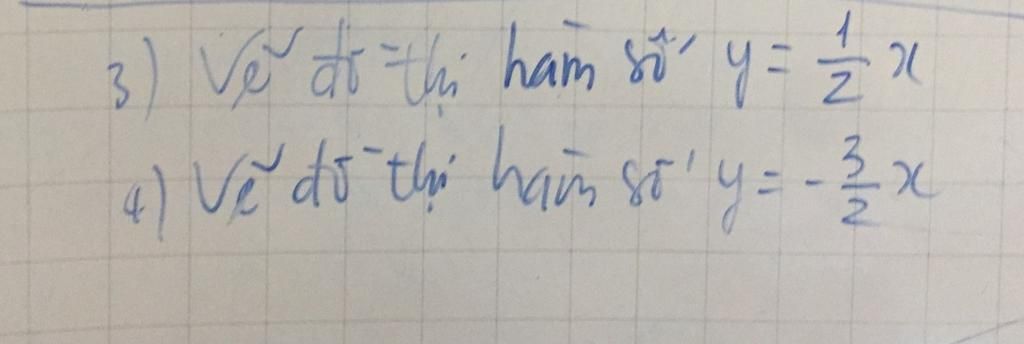 3) Vẽ đồ thị hàm số y = 1/2 x
4) Vẽ đồ thị hàm số y = -3/2 x